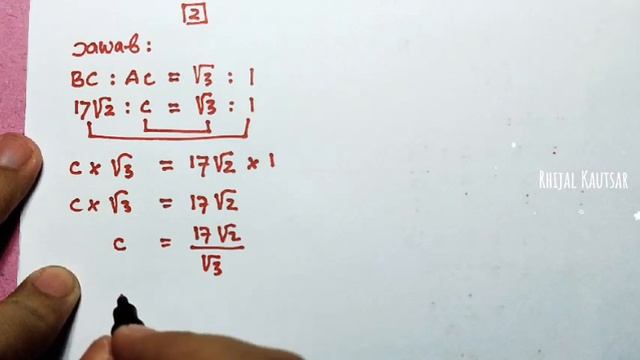 2
Jawab:
BC : AC = √3 : 1
17√2 : c = √3 : 1
c × √3 = 17√2 × 1
c × √3 = 17√2
c = 17√2/√3
RHIJAL KAUTSAR